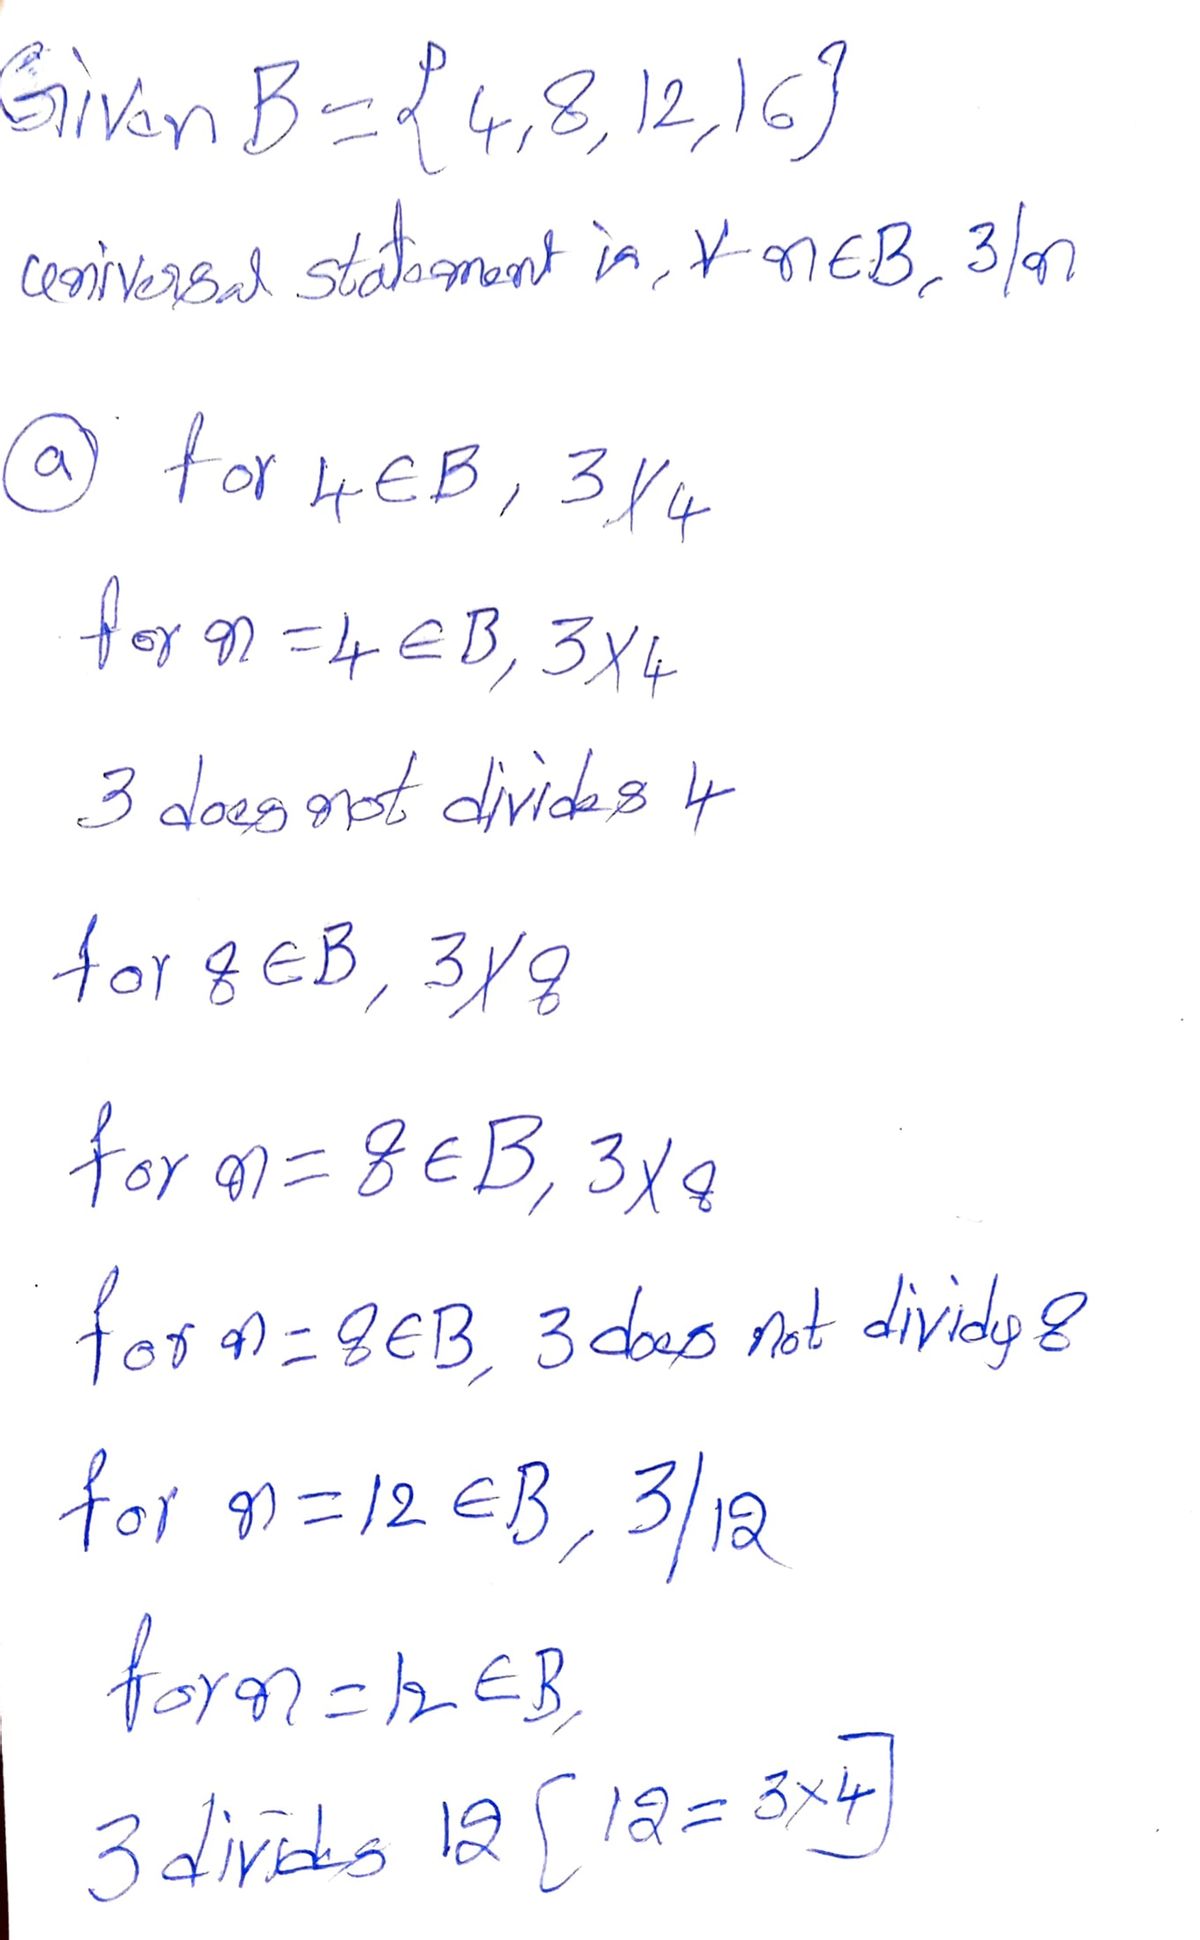 Given B = {4,8,12,16}
universal statement is, ∀ n∈B, 3/n
(a) for 4∈B, 3∤4
for n=4∈B, 3∤4
3 does not divides 4
for 8∈B, 3∤8
for n=8∈B, 3∤8
for n=8∈B, 3 does not divide 8
for n=12∈B, 3/12
for n=12∈B,
3 divides 12 [12=3×4]